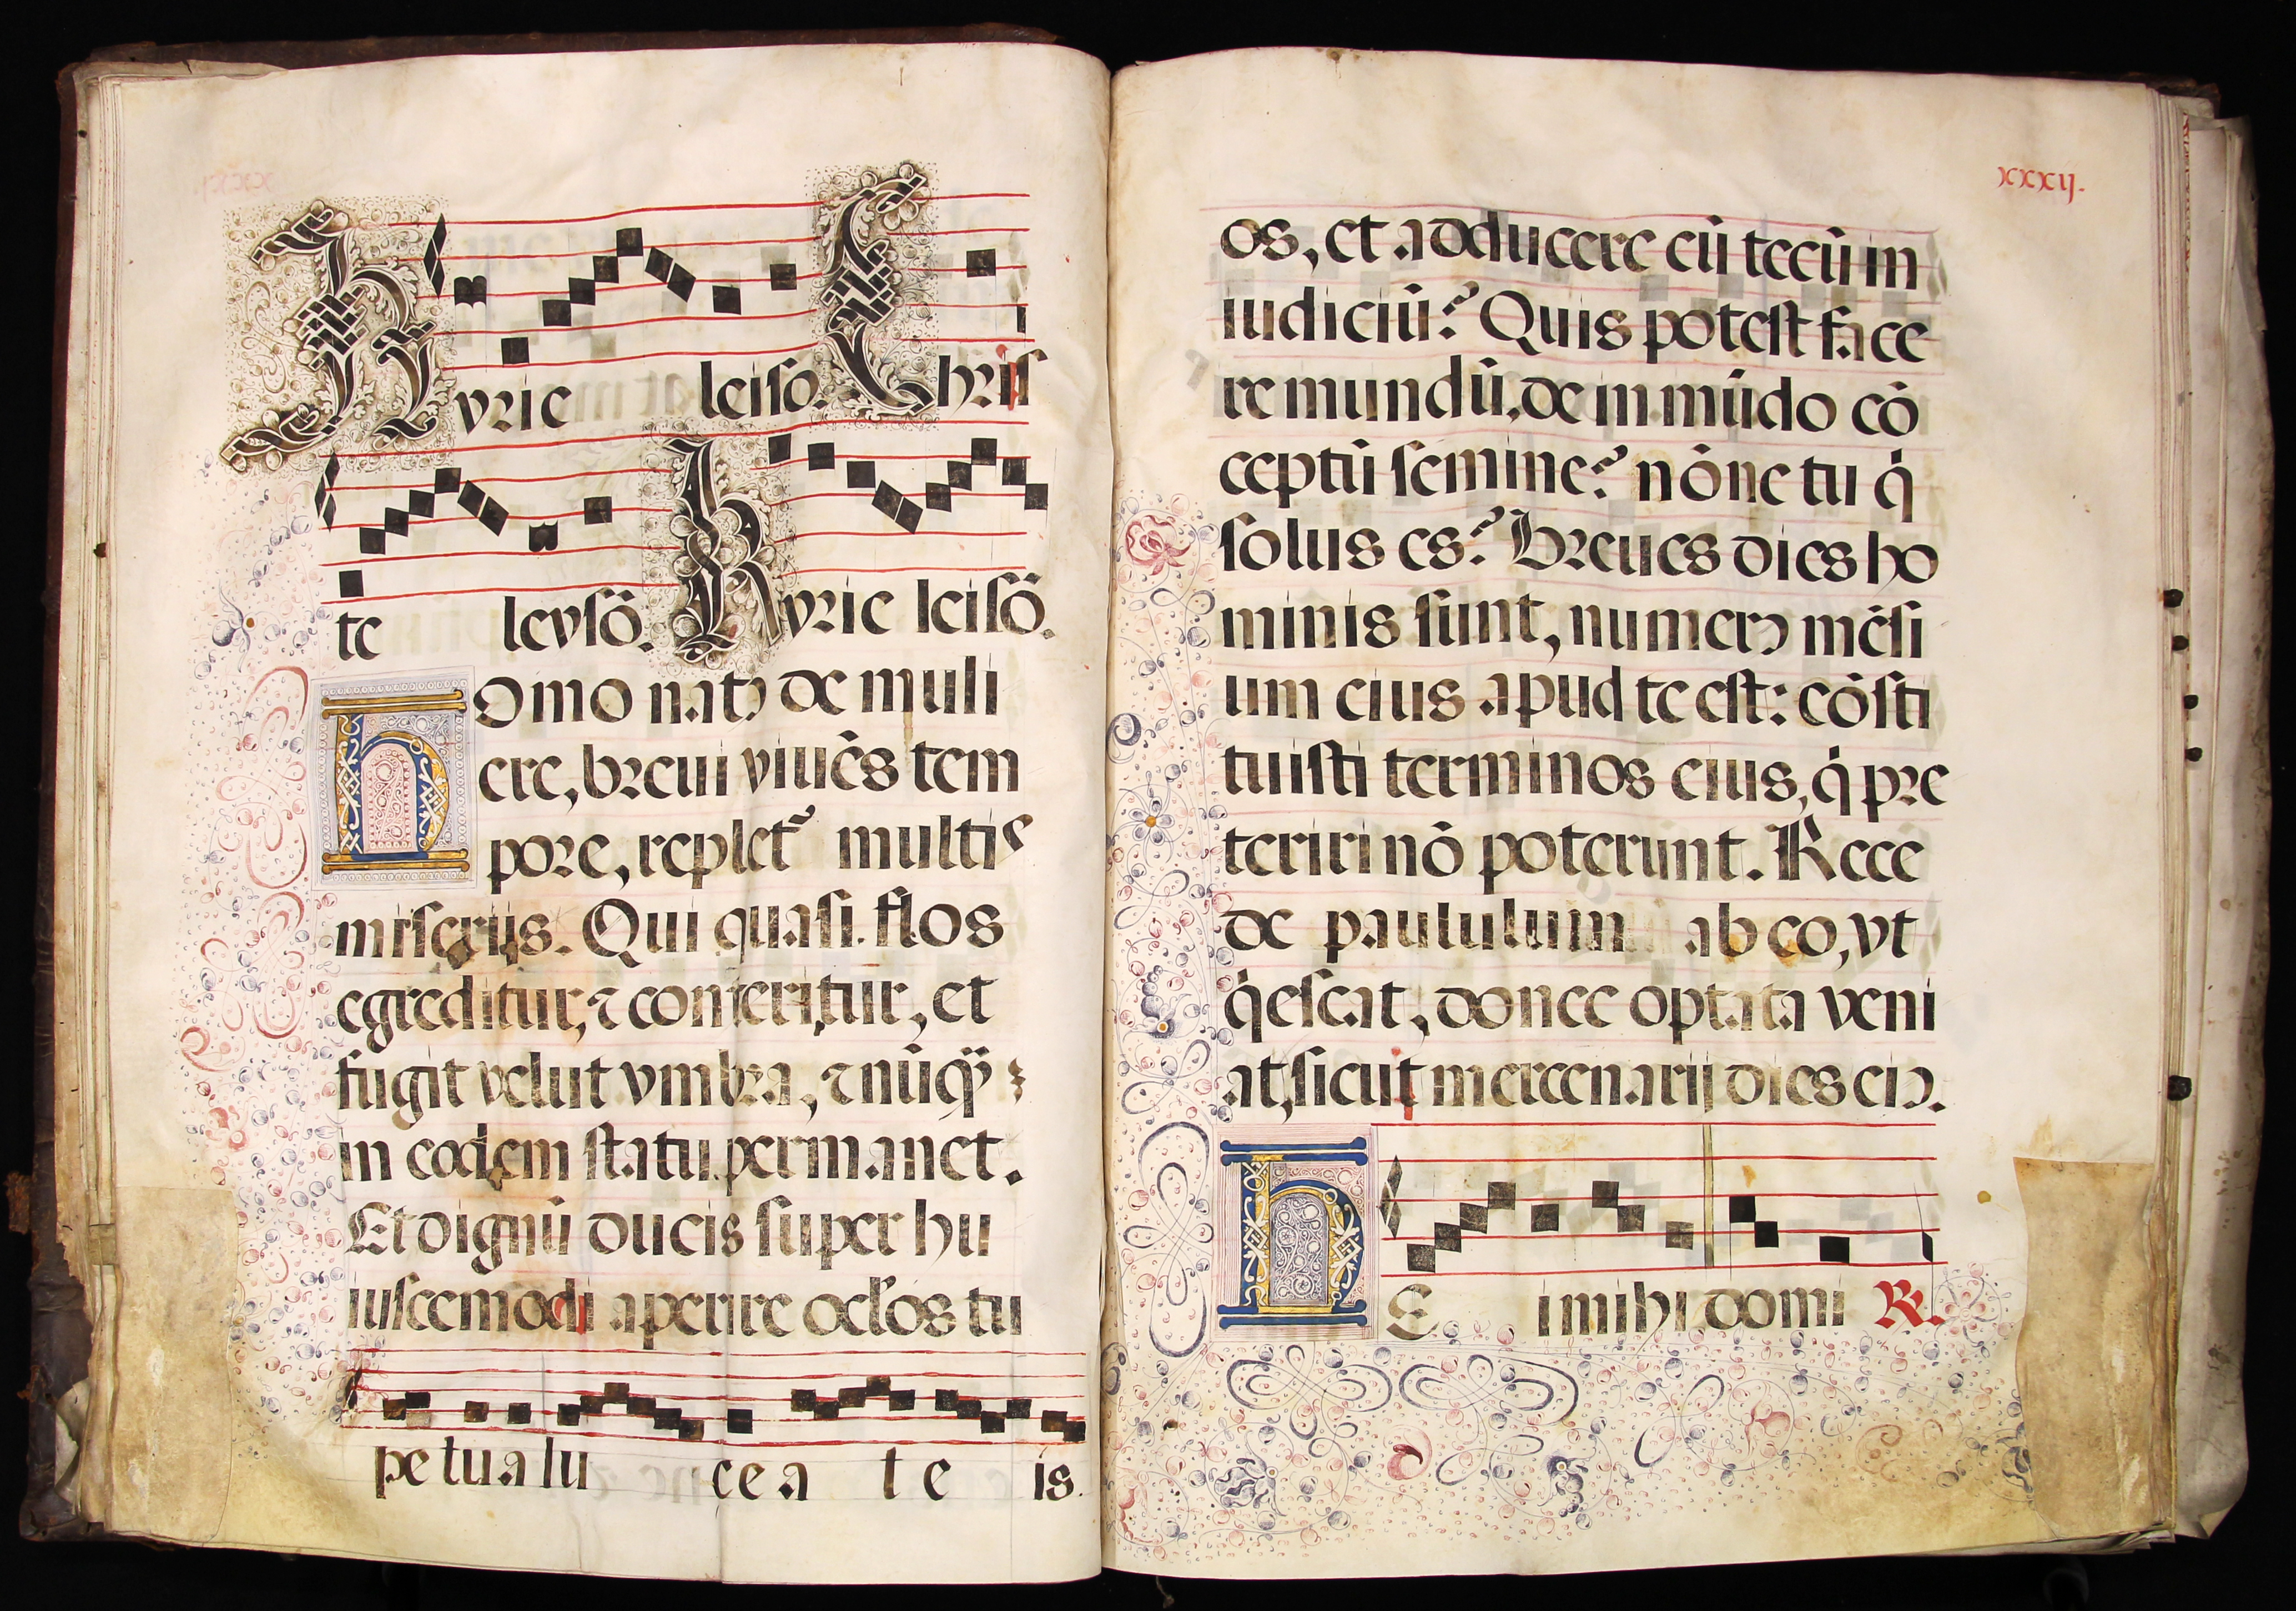 Kyrie leiso. Chris
te leysō. Kyrie leisō.
Homo natꝰ de muli
ere, breui viuēs tem
pore, replet᷑ multis
miserijs. Qui quasi flos
egreditur, ⁊ conteritur, et
fugit velut vmbra, ⁊ nūq̄ȝ
in eodem statu permanet.
Et dignū ducis super hu
iuscemodi aperire ocl'os tu
petua lu cea te is.
xxxij.
os, et adducere eū tecū in
iudiciū? Quis potest face
re mundū, de inmūdo cō
ceptū semine? nōne tu q̇
solus es? Breues dies ho
minis sunt, numerꝰ mēsi
um eius apud te est: cōsti
tuisti terminos eius, q̇ pre
teriri nō poterunt. Rece
de paululum ab eo, vt
q̇escat, donec optata veni
at, sicut mercenarij dies eiꝰ.
HE i mihi domi R.